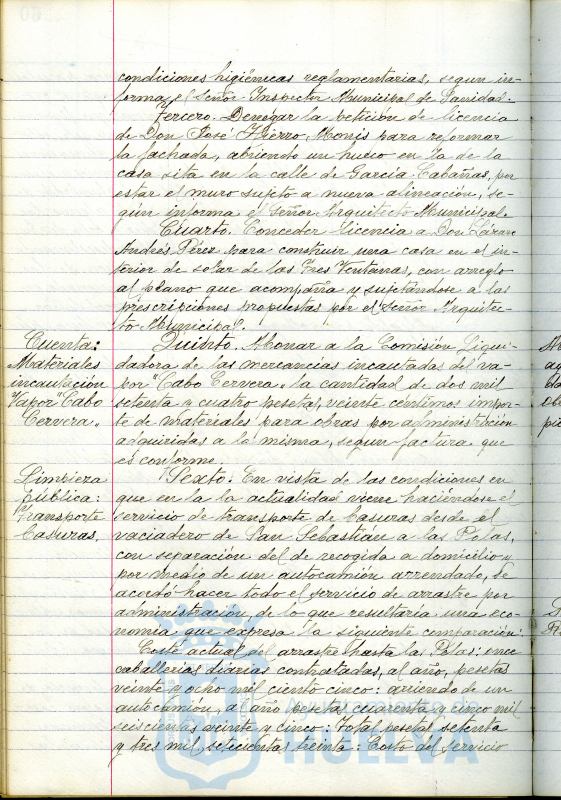 condiciones higiénicas reglamentarias, segun in-
forma el Señor Inspector Municipal de Sanidad.
Tercero. Denegar la petición de licencia
de Don José Hierro Monis para reformar
la fachada, abriendo un hueco en la de la
casa sita en la calle de Garcia Cabañas, por
estar el muro sujeto a nueva alineación, se-
gún informa el Señor Arquitecto Municipal.
Cuarto. Conceder licencia a Don Lázaro
Andrés Pérez para construir una casa en el in-
terior de solar de las Tres Ventanas, con arreglo
al plano que acompaña y sujetándose a las
prescripciones propuestas por el Señor Arquitec-
to Municipal.
Cuenta:
Materiales
incautación
Vapor "Cabo
Cervera"
Quinto. Abonar a la Comisión Liqui-
dadora de las mercancías incautadas del va-
por "Cabo Cervera" la cantidad de dos mil
setenta y cuatro pesetas, veinte céntimos impor-
te de materiales para obras por administración
adquiridas a la misma, segun factura que
es conforme.
Limpieza
pública:
Transporte
basuras.
Sexto. En vista de las condiciones en
que en la la actualidad viene haciéndose el
servicio de transporte de basuras desde el
vaciadero de San Sebastián a las
con separación del de recogida a domicilio y
por medio de un autocamión arrendado, se
acordó hacer todo el servicio de arrastre por
administración, de lo que resultaría una eco-
nomia que expresa la siguiente comparación:
Coste actual del arrastre hasta las once
caballerías diarias contratadas, al año, pesetas
veinte y ocho mil ciento cinco: arriendo de un
autocamión, al año pesetas cuarenta y cinco mil
seiscientas veinte y cinco: Total pesetas setenta
y tres mil, setecientas treinta: Costo del servicio
HUELVA